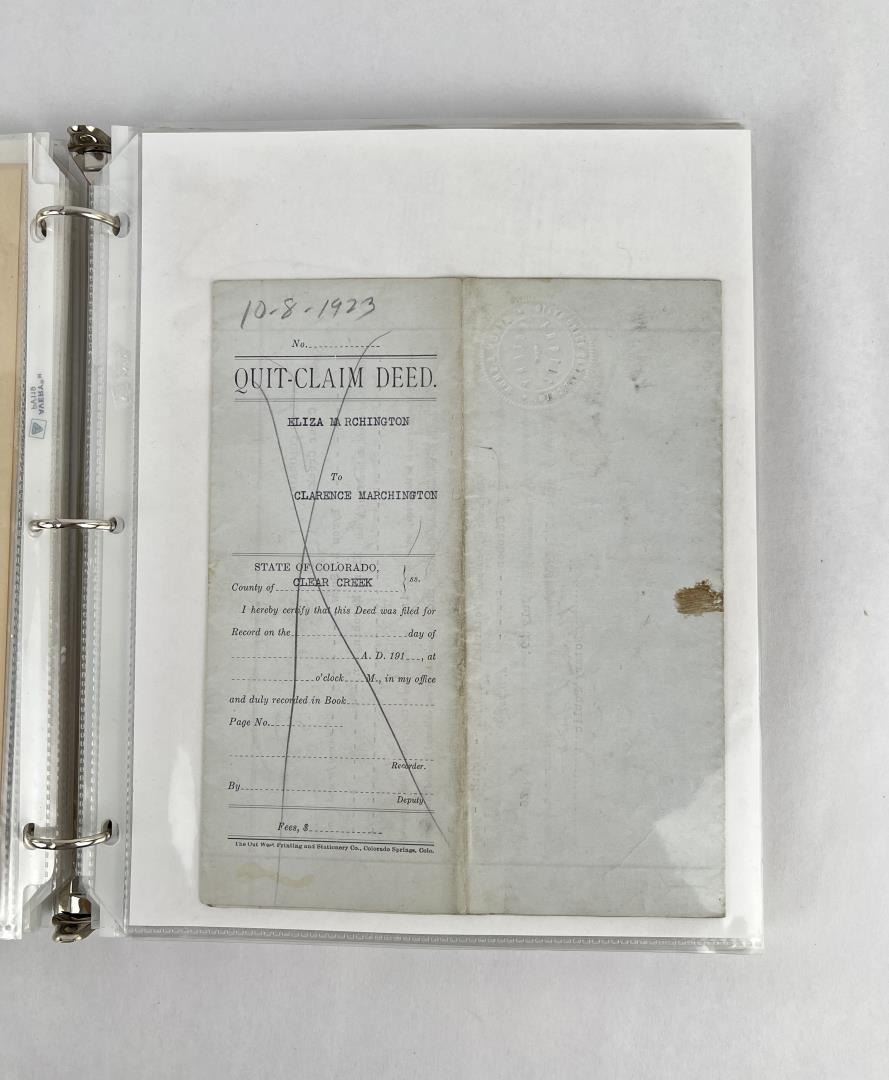 10-8-1923
No.
QUIT-CLAIM DEED.
ELIZA MARCHINGTON
To
CLARENCE MARCHINGTON
STATE OF COLORADO,
County of CLEAR CREEK ss.
I hereby certify that this Deed was filed for
Record on the day of
A. D. 191 , at
o'clock M., in my office
and duly recorded in Book
Page No.
Recorder.
By
Deputy
Fees, $
The Out West Printing and Stationery Co., Colorado Springs, Colo.
AVERY